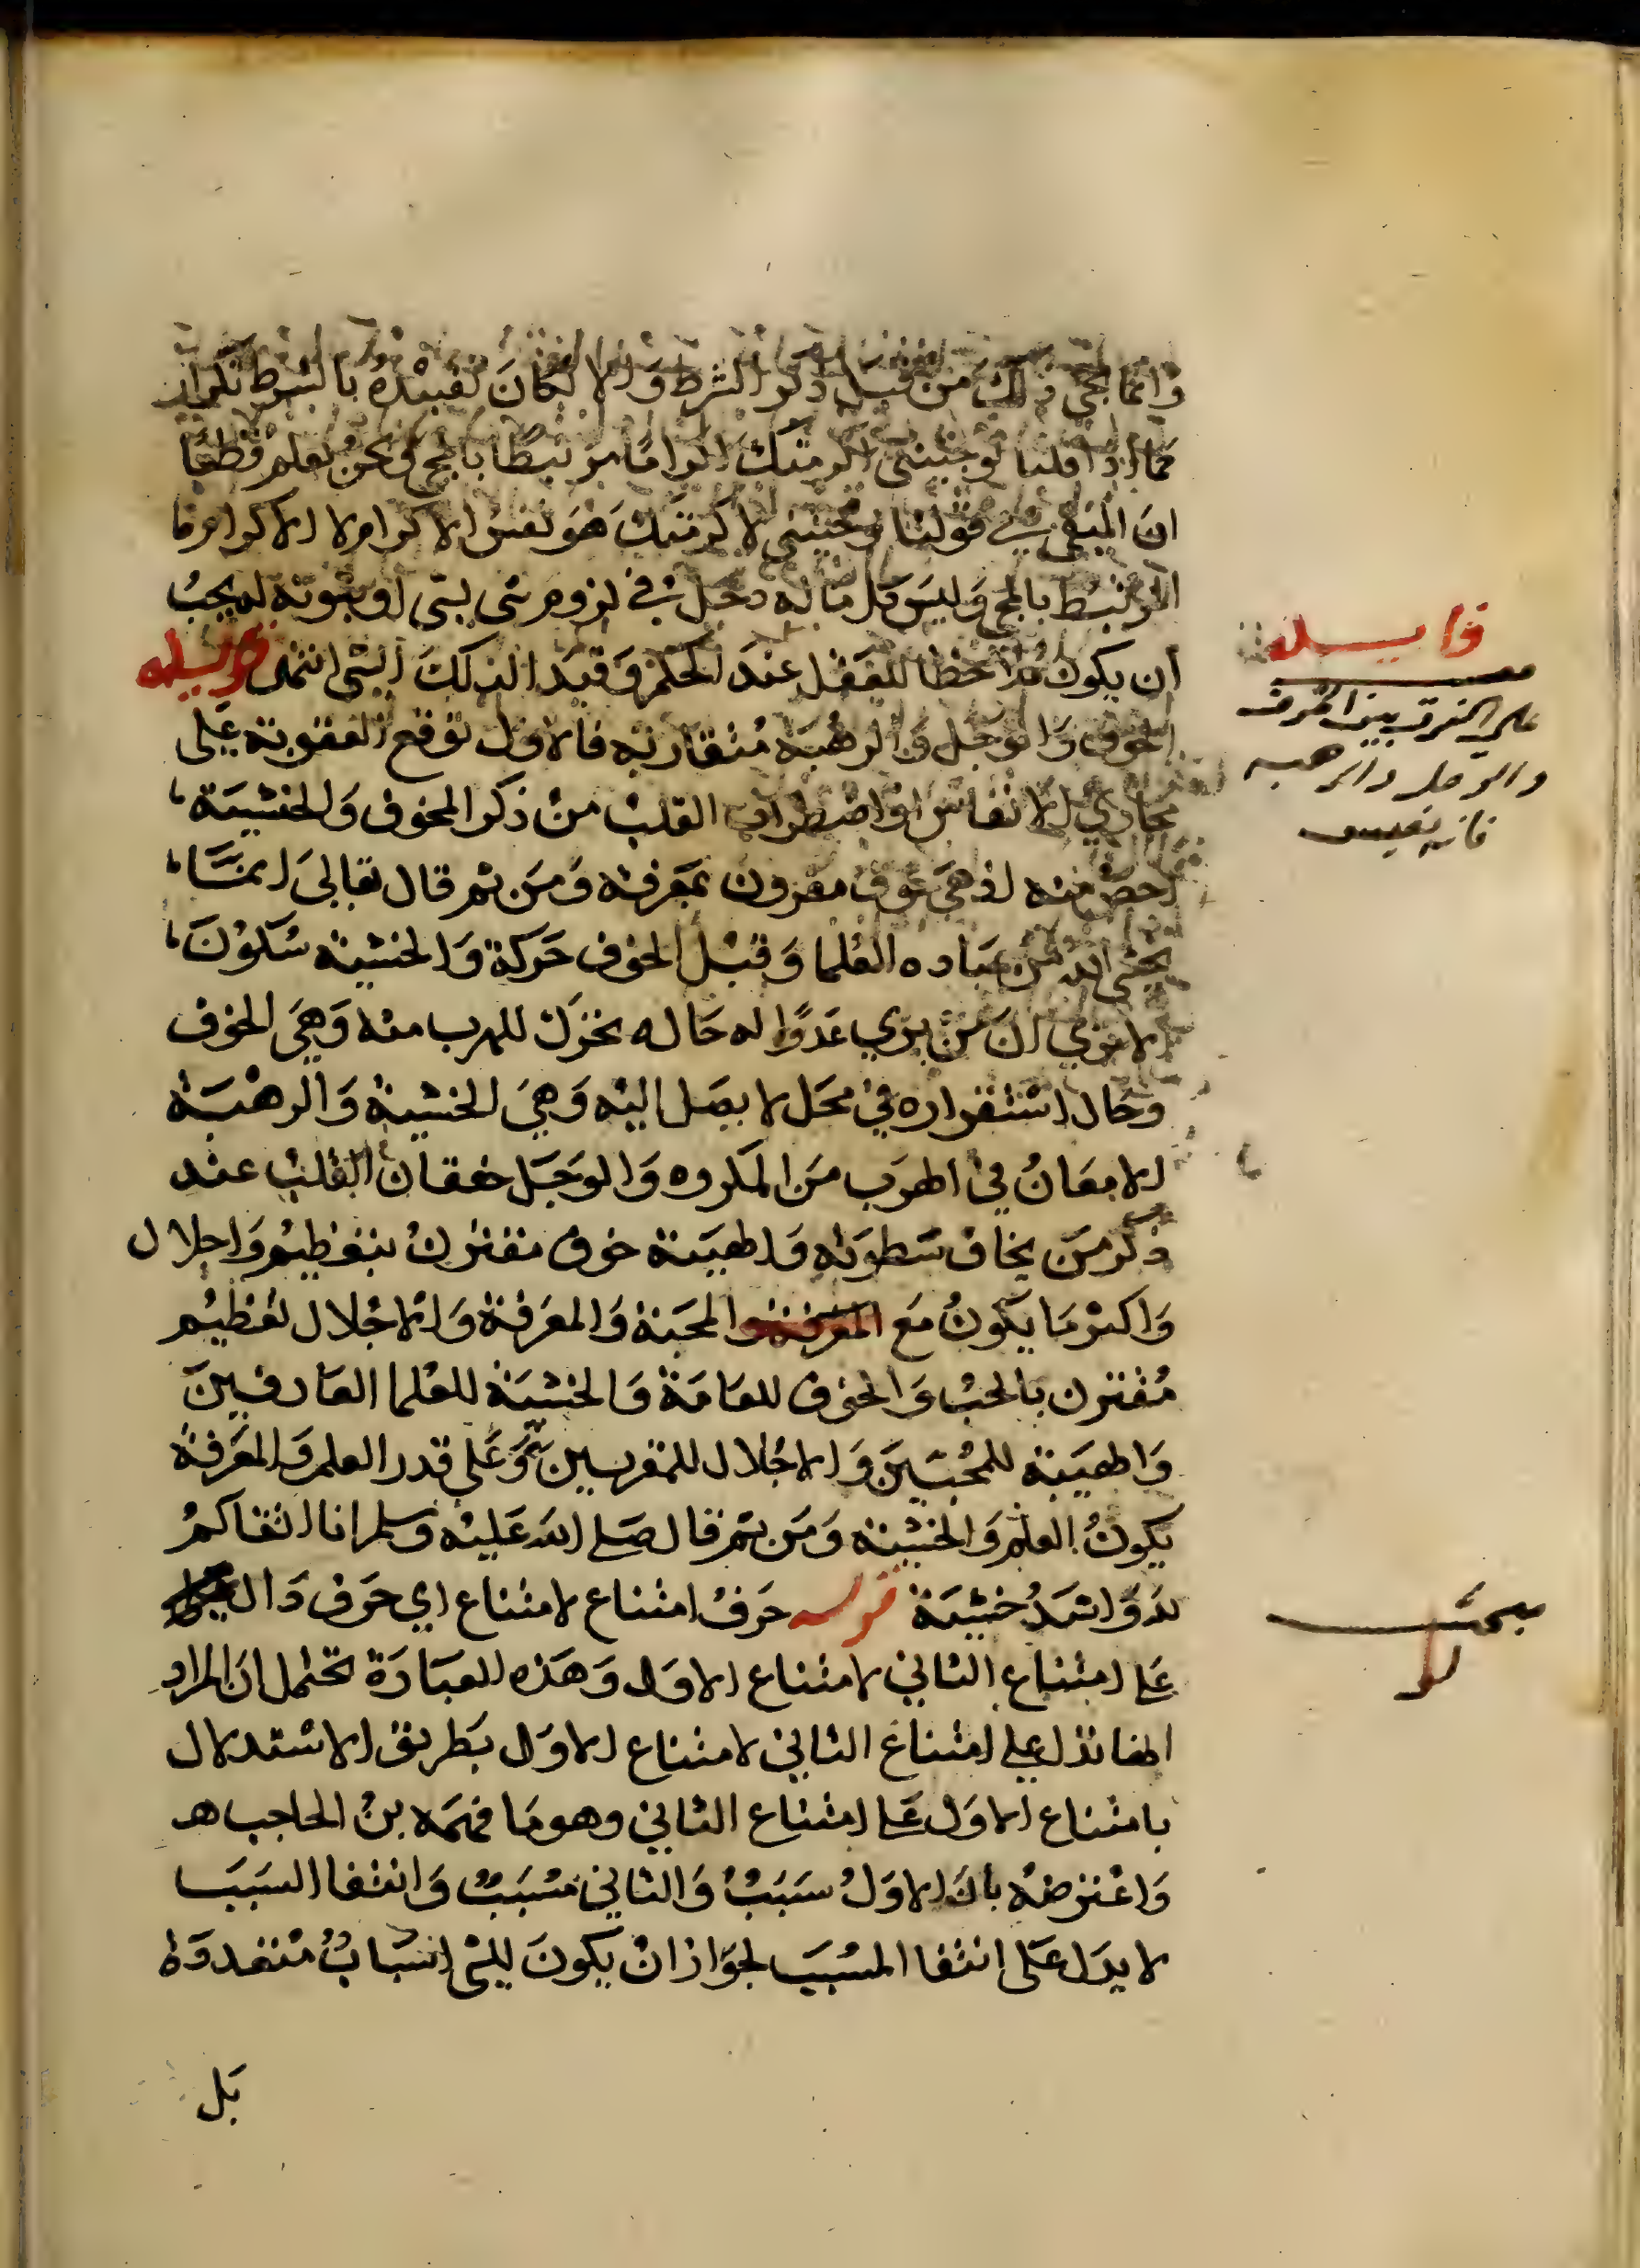 وانما يجي ذلك من قبل ذكر الشرط والا لكان تقييده بالشرط تكرار
كما اذا قلنا لو جئتني اكرمتك اكراما مرتبطا بالمجي ونحن نعلم قطعا
ان المنفي في قولنا لو جئتني لاكرمتك هو نفس الاكرام لا الاكرام
المرتبط بالمجي وليس كل ما له دخل في لزوم شي لشي او ثبوته له يجب
أن يكون ملاحظا للعقل عند الحكم وقيدا لذلك الشي انتهى
الخوف والوجل والرهبة متقاربه فالاول توقع العقوبة على
مجاري الانفاس او اضطراب القلب من ذكر المخوف والخشية
اخص منه اذ هي خوف مقرون بمعرفه ومن ثم قال تعالى انمَّا
يخشى الله من عباده العلما وقيل الخوف حركة والخشية سكون
الا تري ان من يري عدوًا له حاله تحرك للهرب منه وهي الخوف
وحال استقراره في محل لا يصل اليه وهي الخشية والرهبة
الامعان في الهرب من المكروه والوجل خفقان القلب عند
ذكر من يخاف سطوته والهيبة خوف مقترن بتعظيم واجلال
واكثر ما يكون مع المعرفة والمحبة والمعرفة والاجلال تعظيم
مقترن بالحب والخوف للعامة والخشية للعلما العارفين
والهيبة للمحبين والاجلال للمقربين وعلى قدر العلم والمعرفة
يكون العلم والخشية ومن ثم قال صلى الله عليه وسلم انا اتقاكم
لله واشد خشية قوله حرف امتناع لامتناع اي حرف دال
على امتناع الثاني لامتناع الاول وهذه العبارة تحتمل ان المراد
انها تدل على امتناع الثاني لامتناع الاول بطريق الاستدلال
بامتناع الاول على امتناع الثاني وهو ما فهمه بن الحاجب هـ
واعترضه بان الاول سبب والثاني مسبب وانتفا السبب
لا يدل على انتفا المسبب لجواز ان يكون للشي اسباب متعددة
بل
فايده
على الفرق بين الخوف
والوجل والرهبه
فانه نفيس
مبحث
لو